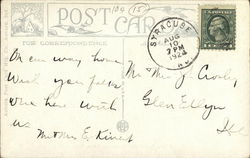 104 (15)
POST CARD
FOR CORRESPONDENCE
SYRACUSE
AUG
10
2 PM
1924
N.Y.
On our way home
Wish you folks
were here with
us
Mr & Mrs E.
Mr & Mrs J. Crosby
Glen Ellyn
Ill